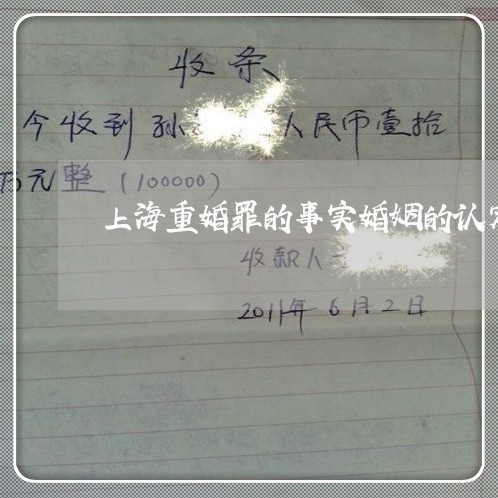 收条
今收到孙 人民币壹拾
万元整(100000)
上海重婚罪的事实婚姻的认
收款人
2011年6月2日